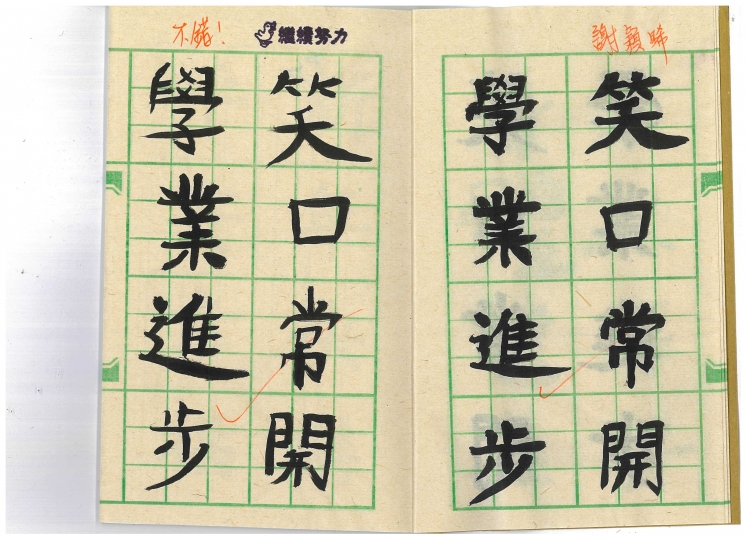 謝穎晞
笑口常開
學業進步
繼續努力
不錯!
笑口常開
學業進步